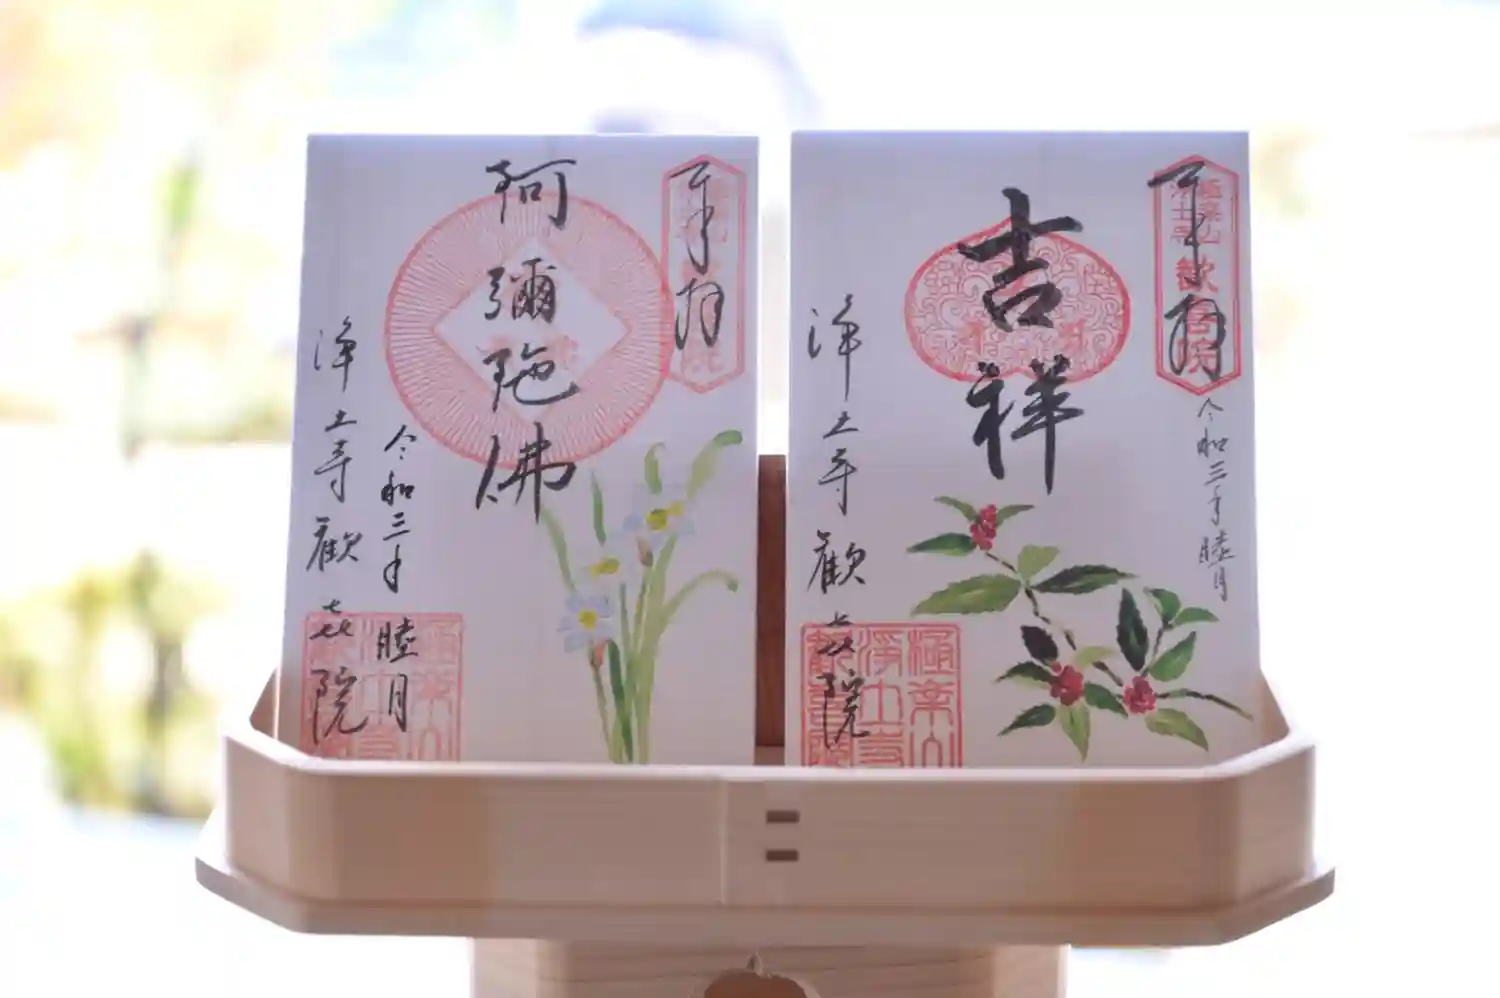 奉拝
阿彌陀佛
令和三年
睦月
浄土寺
歓㐂院
極楽山
浄土寺
奉拝
極楽山
浄土寺
歓喜院
令和三年睦月
吉祥
浄土寺
歓㐂院
極楽山
浄土寺
歓喜院